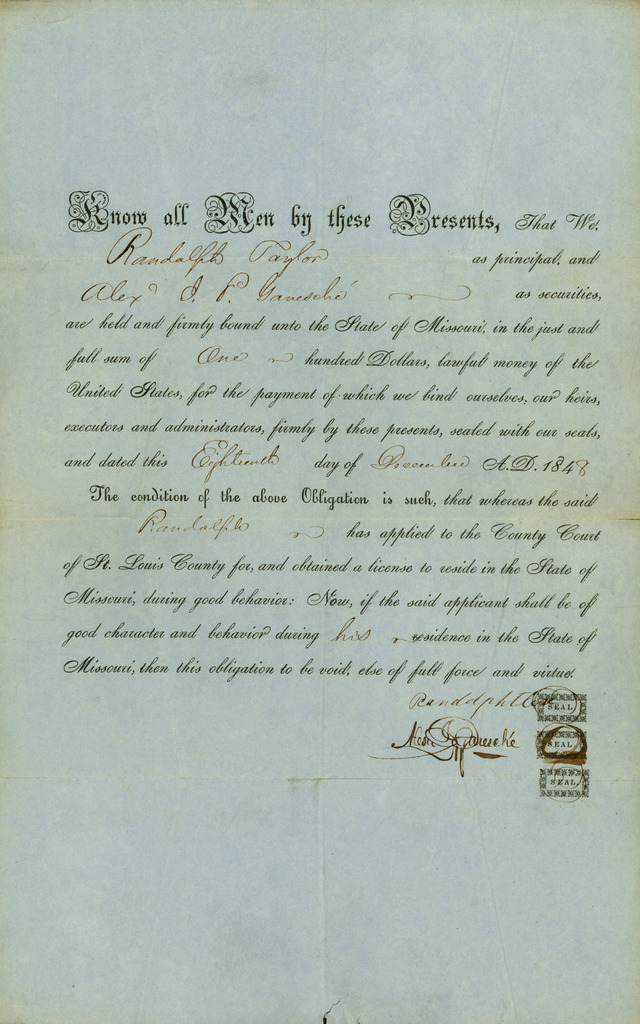 Know all Men by these Presents, That We,
Randolph Taylor as principal, and
Alexr J. P. Garesché as securities,
are held and firmly bound unto the State of Missouri, in the just and
full sum of One hundred Dollars, lawful money of the
United States, for the payment of which we bind ourselves, our heirs,
executors and administrators, firmly by these presents, sealed with our seals,
and dated this Eighteenth day of December A.D. 1848
The condition of the above Obligation is such, that whereas the said
Randolph has applied to the County Court
of St. Louis County for, and obtained a license to reside in the State of
Missouri, during good behavior: Now, if the said applicant shall be of
good character and behavior during his residence in the State of
Missouri, then this obligation to be void, else of full force and virtue.
Randolph SEAL
Alexr J P Garesché SEAL
SEAL